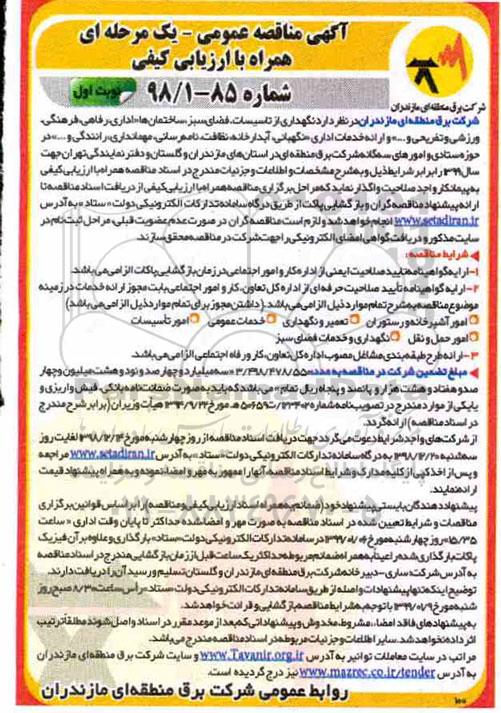 آگهی مناقصه عمومی - یک مرحله ای
همراه با ارزیابی کیفی
شماره ۸۵-۹۸/۱
نوبت اول
شرکت برق منطقه ای مازندران
شرکت برق منطقه ای مازندران در نظر دارد نگهداری از تاسیسات، فضای سبز، ساختمان ها «اداری، رفاهی، فرهنگی،
ورزشی و تفریحی و ...» و ارائه خدمات اداری «نگهبانی، آبدارخانه، نظافت، نامه رسانی، مهمانداری، رانندگی و ...» در
حوزه ستادی و امور های سه گانه شرکت برق منطقه ای در استان های مازندران و گلستان و دفتر نمایندگی تهران جهت
سال ۱۳۹۹ را برابر شرایط ذیل و به شرح مشخصات و اطلاعات و جزئیات مندرج در اسناد مناقصه همراه با ارزیابی کیفی
به پیمانکار واجد صلاحیت واگذار نماید که مراحل برگزاری مناقصه همراه با ارزیابی کیفی از دریافت اسناد مناقصه تا
ارائه پیشنهاد مناقصه گران و بازگشایی پاکات از طریق درگاه سامانه تدارکات الکترونیکی دولت «ستاد» به آدرس
www.setadiran.ir انجام خواهد شد و لازم است مناقصه گران در صورت عدم عضویت قبلی، مراحل ثبت نام در
سایت مذکور و دریافت گواهی امضای الکترونیکی را جهت شرکت در مناقصه محقق سازند.
شرایط مناقصه:
۱- ارایه گواهینامه تایید صلاحیت ایمنی از اداره کار و امور اجتماعی در زمان بازگشایی پاکات الزامی می باشد.
۲- ارایه گواهینامه تأیید صلاحیت حرفه ای از اداره کل تعاون، کار و امور اجتماعی بابت مجوز ارائه خدمات در زمینه
موضوع مناقصه به شرح تمام موارد ذیل الزامی می باشد. (داشتن مجوز برای تمام موارد ذیل الزامی می باشد)
امور آشپزخانه و رستوران تعمیر و نگهداری خدمات عمومی امور تأسیسات
امور حمل و نقل نگهداری و خدمات فضای سبز
۳- ارائه طرح طبقه بندی مشاغل مصوب اداره کل تعاون، کار و رفاه اجتماعی الزامی می باشد.
مبلغ تضمین شرکت در مناقصه به عدد: ۳/۴۹۸/۴۷۸/۵۵۰ «سه میلیارد و چهارصد و نود و هشت میلیون و چهار
صد و هفتاد و هشت هزار و پانصد و پنجاه ریال تمام» می باشد که باید به صورت ضمانت نامه بانکی، فیش واریزی و
یا یکی از موارد مندرج در تصویب نامه شماره ۱۲۳۴۰۲/ت۵۰۶۵۹ هـ مورخ ۱۳۹۴/۹/۲۲ هیأت وزیران (برابر شرح مندرج
در اسناد مناقصه) ارائه گردد.
از شرکت های واجد شرایط دعوت می گردد جهت دریافت اسناد مناقصه از روز چهارشنبه مورخ ۱۳۹۸/۱۲/۱۴ لغایت روز
سه شنبه ۱۳۹۸/۱۲/۲۰ به درگاه سامانه تدارکات الکترونیکی دولت «ستاد» به آدرس www.setadiran.ir مراجعه
و پس از اخذ کپی از کلیه مدارک و شرایط اسناد مناقصه، آنها را ممهور به مهر و امضاء نموده و به همراه پیشنهاد قیمت
ارائه نمایند.
پیشنهاد دهندگان بایستی پیشنهاد خود (ضمانتنامه، اسناد ارزیابی کیفی و مناقصه) را بر اساس قوانین برگزاری
مناقصات و شرایط تعیین شده در اسناد مناقصه به صورت مهر و امضا شده حداکثر تا پایان وقت اداری «ساعت
۱۵/۳۵» روز چهارشنبه مورخ ۱۳۹۹/۰۱/۰۶ در سامانه تدارکات الکترونیکی دولت «ستاد» بارگذاری و علاوه بر آن فیزیک
پاکات بارگذاری شده را عیناً به همراه ضمائم مربوطه حداکثر یک ساعت قبل از زمان بازگشایی مندرج در اسناد مناقصه
به آدرس شرکت: ساری - دبیرخانه شرکت برق منطقه ای مازندران و گلستان تسلیم و رسید آن را دریافت دارند.
توضیح اینکه تنها پیشنهادات واصله از طریق سامانه تدارکات الکترونیکی دولت «ستاد» رأس ساعت ۸/۳۰ صبح روز
شنبه مورخ ۱۳۹۹/۰۱/۰۹ با توجه به شرایط مناقصه بازگشایی و قرائت خواهد شد.
به پیشنهادهای فاقد امضاء، مشروط، مخدوش و پیشنهاداتی که بعد از موعد مقرر در اسناد واصل شوند مطلقاً ترتیب
اثر داده نخواهد شد. سایر اطلاعات و جزییات مربوطه در اسناد مناقصه مندرج می باشد.
مراتب در سایت معاملات توانیر به آدرس www.Tavanir.org.ir و سایت شرکت برق منطقه ای مازندران
به آدرس www.mazrec.co.ir/tender نیز درج گردیده است.
روابط عمومی شرکت برق منطقه ای مازندران